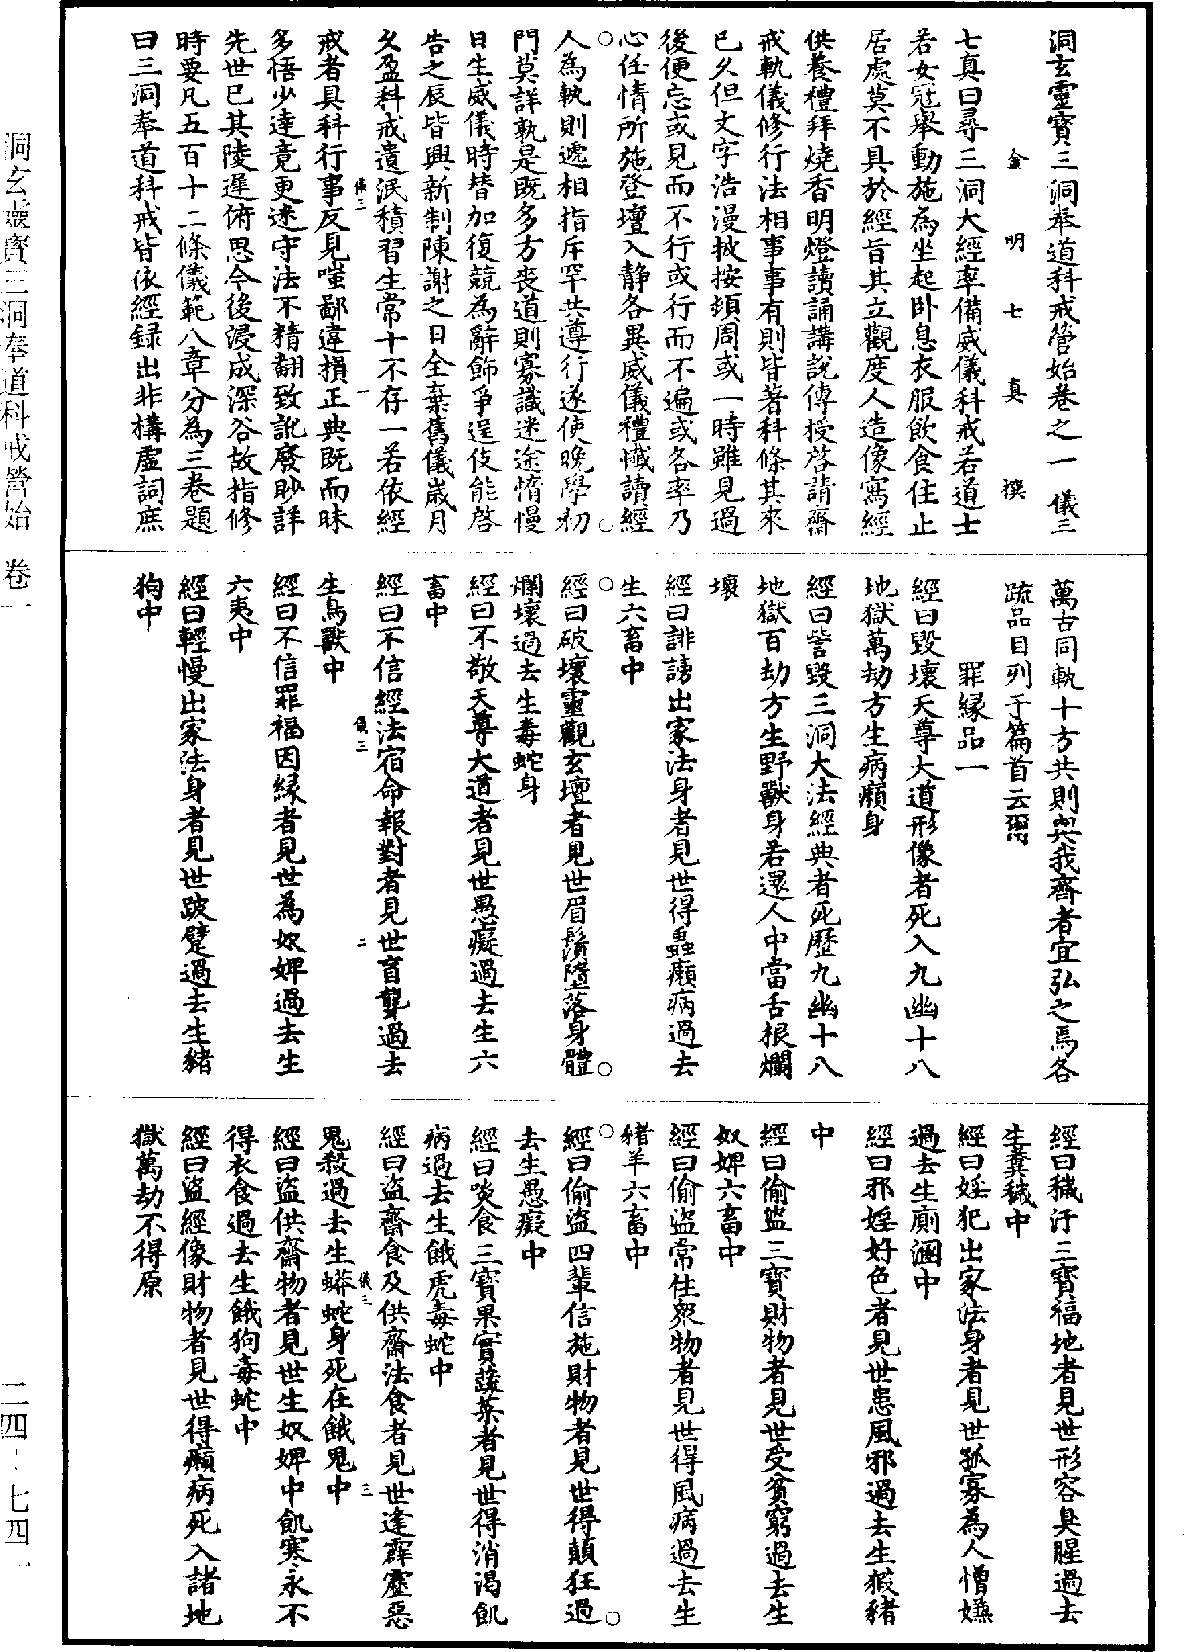 洞玄靈寶三洞奉道科戒營始卷之一 儀三
金明七真撰
七真曰尋三洞大經率備威儀科戒若道士
若女冠舉動施為坐起卧息衣服飲食住止
居處莫不具於經旨其立觀度人造像寫經
供養禮拜燒香明燈讀誦講說傳授啓請齋
戒軌儀修行法相事事有則皆著科條其來
已久但文字浩漫披按頗周或一時雖見過
後便忘或見而不行或行而不遍或各率乃
心任情所施登壇入靜各異威儀禮懺讀經
人為軌則遞相指斥罕共遵行遂使晚學初
門莫詳孰是既多方喪道則寡識迷途惰慢
日生威儀時替加復競為辭飾爭逞伎能啓
告之辰皆興新制陳謝之日全棄舊儀歲月
久盈科戒遺泯積習生常十不存一若依經
戒者具科行事反見嗤鄙違損正典既而昧
儀三
一
多悟少達竟更迷守法不精翻致訛廢眇詳
先世已其陵遲俯思令後浸成深谷故指修
時要凡五百十二條儀範八章分為三卷題
曰三洞奉道科戒皆依經錄出非構虛詞庶
萬古同軌十方共則與我齊者宜弘之焉各
疏品目列于篇首云爾
罪緣品一
經曰毀壞天尊大道形像者死入九幽十八
地獄萬劫方生病癩身
經曰訾毀三洞大法經典者死歷九幽十八
地獄百劫方生野獸身若還人中當舌根爛
壞
經曰誹謗出家法身者見世得蟲癩病過去
生六畜中
經曰破壞靈觀玄壇者見世眉鬚墮落身體
爛壞過去生毒蛇身
經曰不敬天尊大道者見世愚癡過去生六
畜中
經曰不信經法宿命報對者見世盲聾過去
生鳥獸中
儀三
二
經曰不信罪福因緣者見世為奴婢過去生
六夷中
經曰輕慢出家法身者見世跛躄過去生豬
狗中
經曰穢汙三寶福地者見世形容臭腥過去
生糞穢中
經曰婬犯出家法身者見世孤寡為人憎嫌
過去生廁溷中
經曰邪婬好色者見世患風邪過去生猳豬
中
經曰偷盜三寶財物者見世受貧窮過去生
奴婢六畜中
經曰偷盜常住眾物者見世得風病過去生
豬羊六畜中
經曰偷盜四輩信施財物者見世得顛狂過
去生愚癡中
經曰啖食三寶果實蔬菜者見世得消渴飢
病過去生餓虎毒蛇中
經曰盜齋食及供齋法食者見世逢霹靂惡
鬼殺過去生蟒蛇身死在餓鬼中
儀三
三
經曰盜供齋物者見世生奴婢中飢寒永不
得衣食過去生餓狗毒蛇中
經曰盜經像財物者見世得癩病死入諸地
獄萬劫不得原
洞玄靈寶三洞奉道科戒營始 卷一
二四-七四一